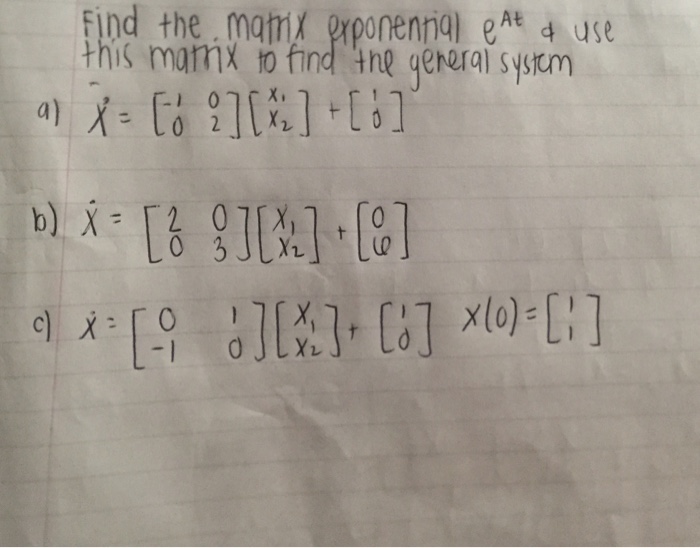 Find the matrix exponential e^At & use
this matrix to find the general system
a) Ẋ = [-1 0; 0 2][x₁; x₂] + [1; 0]
b) Ẋ = [2 0; 0 3][x₁; x₂] + [0; 6]
c) ẋ = [0 1; -1 0][x₁; x₂] + [1; 0] x(0) = [1; 1]